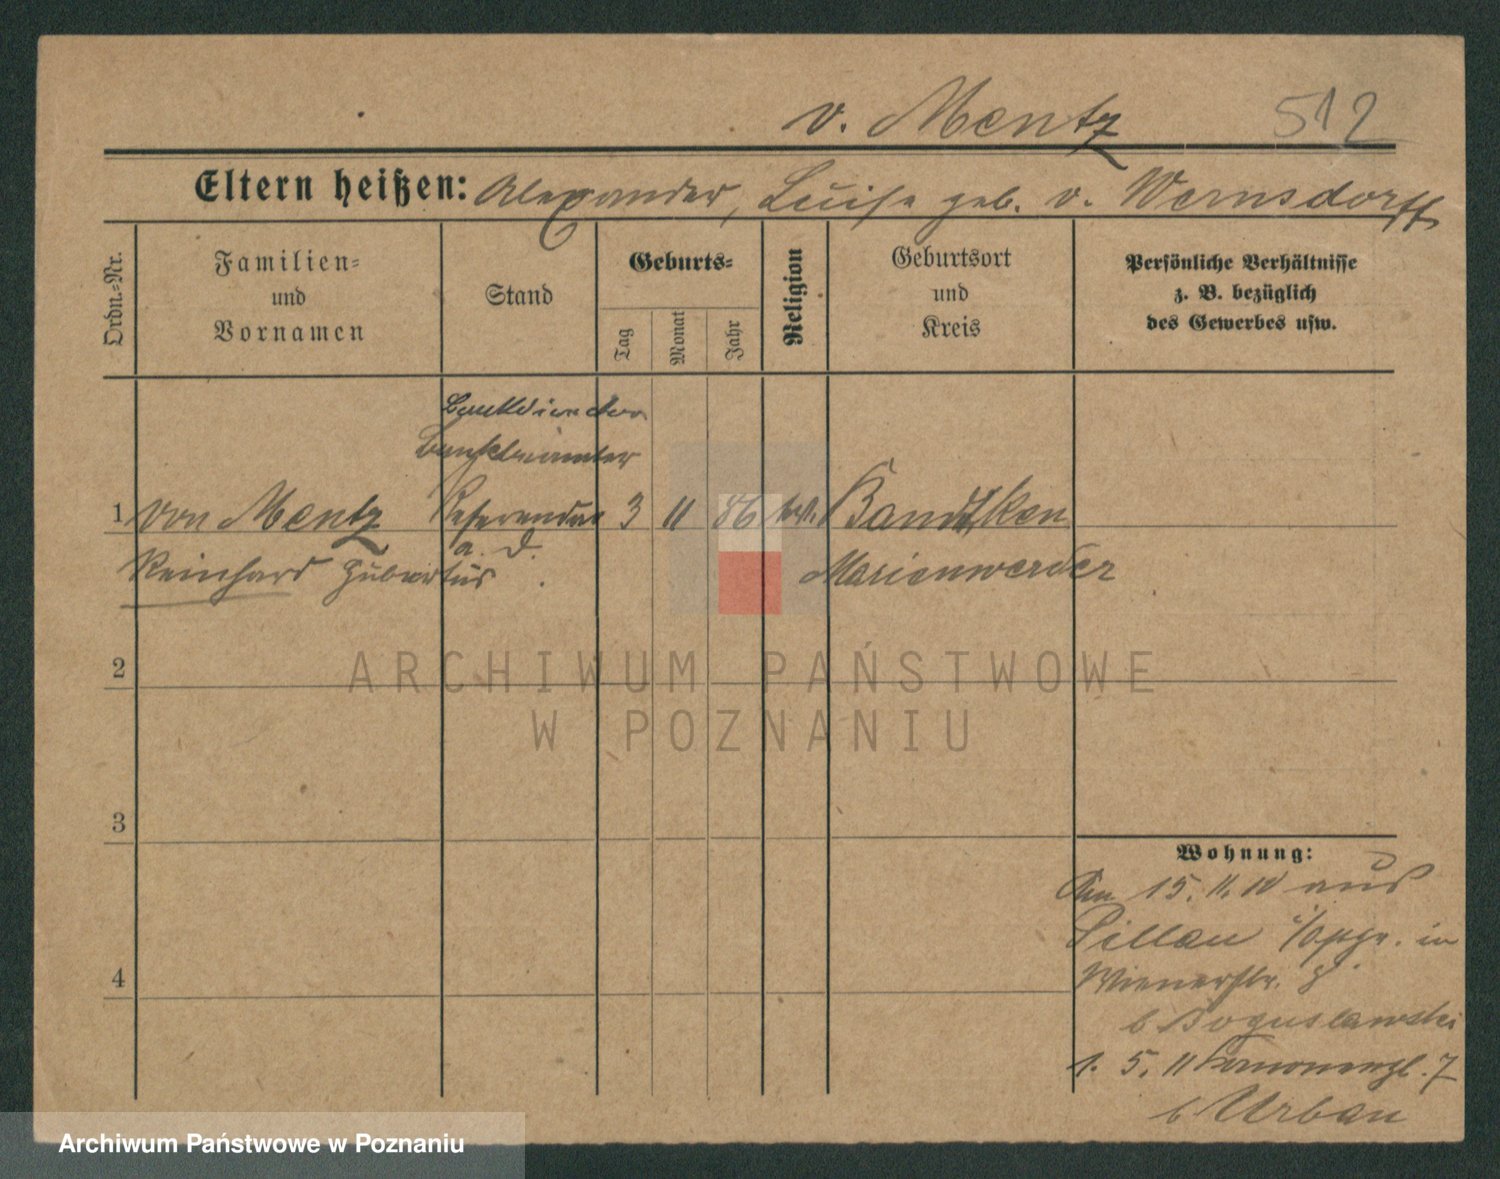 v. Mentz 512
Eltern heißen: Alexander, Luise geb. v. Wernsdorff
Ordn.-Nr.
Familien-
und
Vornamen
Stand
Geburts-
Tag
Monat
Jahr
Religion
Geburtsort
und
Kreis
Persönliche Verhältnisse
z. B. bezüglich
des Gewerbes usw.
Bankdirektor
Bankbeamter
1 von Mentz Referendar 3 11 86 ev. Bandtken
a. D.
Reinhard Hubertus Marienwerder
2
3
4
Wohnung:
15. 11. 10 aus
Pillau in
Wienerstr. 8
b Boguslawski
1. 5. 11 7
b Urban
ARCHIWUM PAŃSTWOWE
W POZNANIU
Archiwum Państwowe w Poznaniu